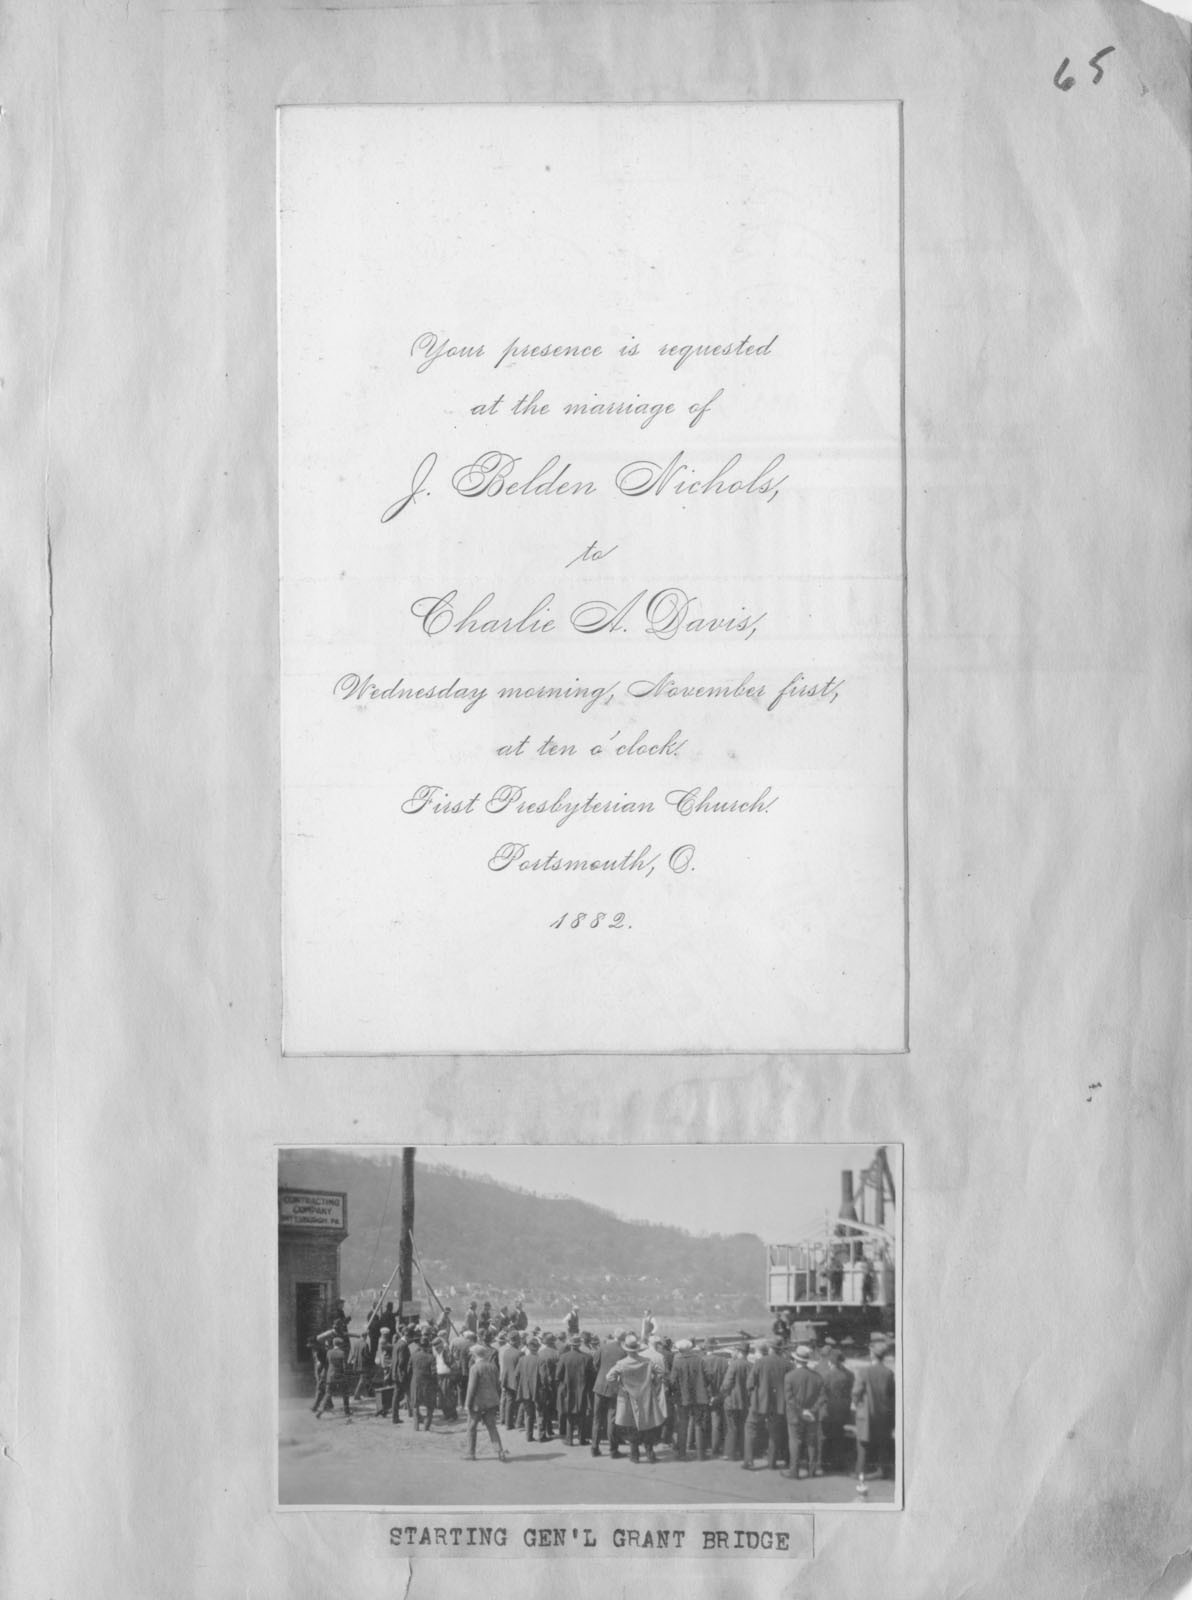 65
Your presence is requested
at the marriage of
J. Belden Nichols,
to
Charlie A. Davis,
Wednesday morning, November first,
at ten o'clock.
First Presbyterian Church.
Portsmouth, O.
1882.
CONTRACTING
COMPANY
PITTSBURGH, PA.
STARTING GEN'L GRANT BRIDGE